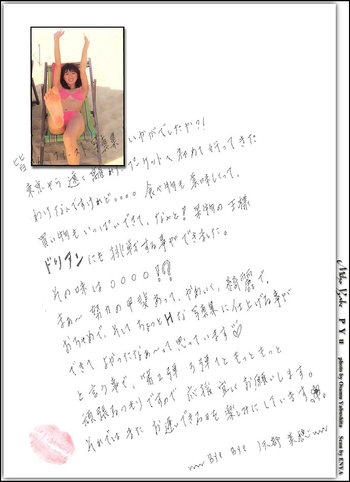 皆 写真集 いかがでしたか?!
東京から遠く離れたプーケットへ初めて行ってきた
わけなんですけれど。。。。食べ物も美味しくって、
買い物もいっぱいできて、なんと! 果物の王様
ドリアンにも挑戦する事ができました。
その味は。。。。!!?
まぁ〜 努力の甲斐あって、かわいく、綺麗で、
おちゃめで、そいてちょっとHな写真集に仕上げる事が
できてよかったなぁ〜って思っています♡
と言う事で、第2弾 3弾ともっともっと
頑張るつもりですので応援宜しくお願いします。
それではまたお逢いできる日を楽しみにしています。
〜〜 Bye Bye
P Y U
photo by Osamu Yabushita
Scan by ENYA